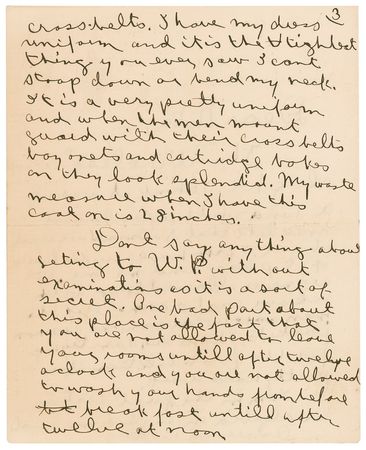 3
cross-belts. I have my dress
uniform and it is the tightest
thing you ever saw I cant
stoop down or bend my neck.
It is a very pretty uniform
and when the men mount
guard with their cross belts
bayonets and cartridge boxes
on they look splendid. My waste
measure when I have this
coat on is 28 inches.
Don't say anything about
geting to W.P. without
examination as it is a sort of
secret. One bad part about
this place is the fact that
you are not allowed to leave
your rooms untill after twelve
oclock and you are not allowed
to wash your hands from before
breakfast untill after
twelve at noon